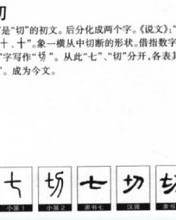 切
是“切”的初文。后分化成两个字。《说文》：“
十、十”。象一横从中切断的形状。借指数字
字写作“切”。从此“七”、“切”分开，各表其
”。成为今文。
七 切 七 切 切
小篆1 小篆2 隶书七 汉简